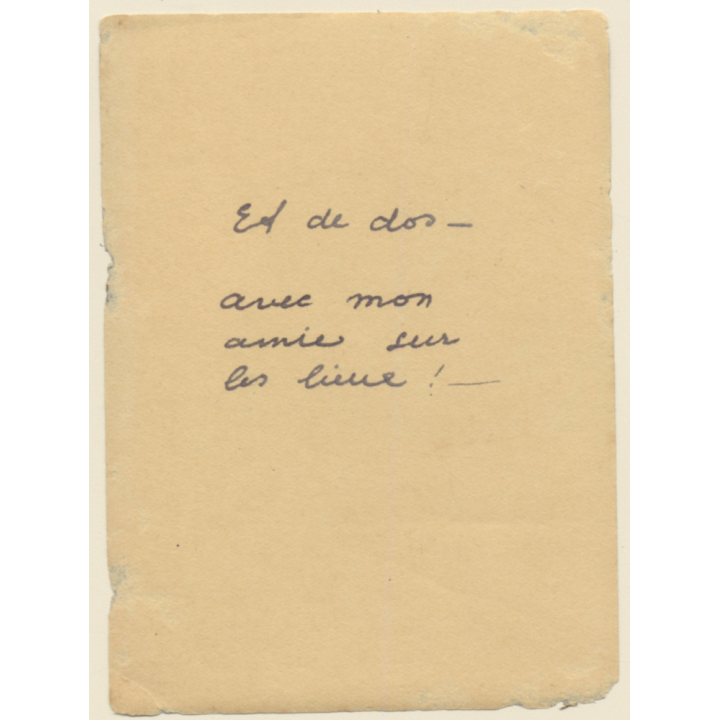 Et de dos —
avec mon
amie sur
les lieux ! —